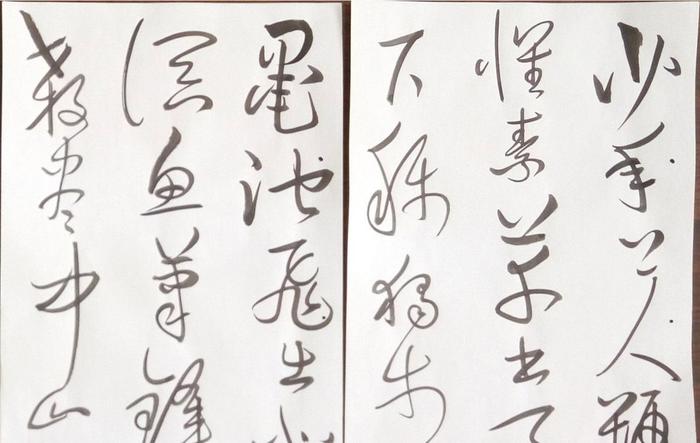 少年上人號
懷素草書天
下稱獨步
墨池飛出北
溟魚筆鋒
殺盡中山